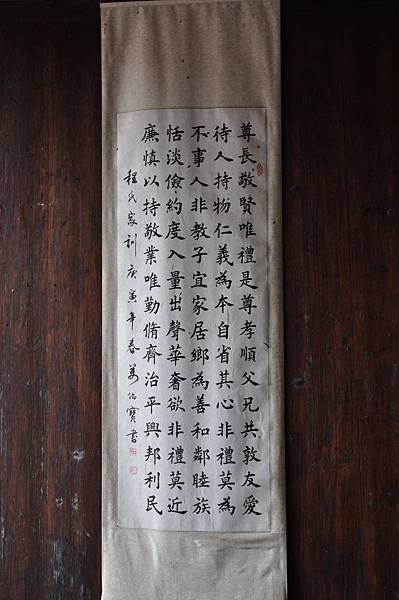 尊長敬賢唯禮是尊孝順父兄共敦友愛
待人持物仁義為本自省其心非禮莫為
不事人非教子宜家居鄉為善和鄰睦族
恬淡儉約度入量出聲華奢欲非禮莫近
廉慎以持敬業唯勤脩齊治平興邦利民
程氏家訓庚寅年春姜佑寶書